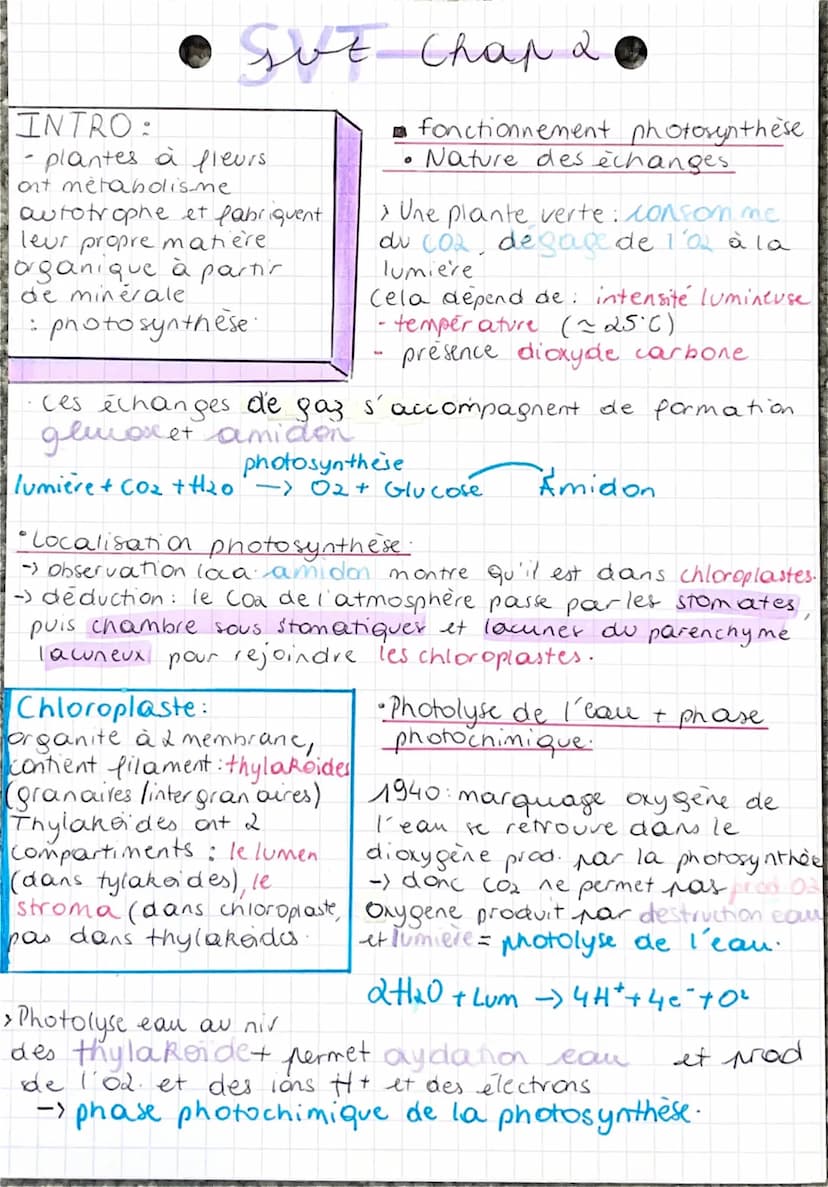 SVT - Chap 2
INTRO :
- plantes à fleurs
ont métabolisme
autotrophe et fabriquent
leur propre matière
organique à partir
de minérale
: photosynthèse.
▪ fonctionnement photosynthèse
• Nature des échanges
> Une plante verte : consomme
du CO2, dégage de l'O2 à la
lumière
Cela dépend de : intensité lumineuse
- température (≈ 25°C)
- présence dioxyde carbone
. ces échanges de gaz s'accompagnent de formation
glucose et amidon
photosynthèse
lumière + CO2 + H2O —> O2 + Glucose Amidon
• Localisation photosynthèse.
-> observation loca. amidon montre qu'il est dans chloroplastes.
-> déduction : le CO2 de l'atmosphère passe par les stomates,
puis chambre sous stomatiques et lacunes du parenchyme
lacuneux pour rejoindre les chloroplastes.
Chloroplaste :
organite à 2 membrane,
contient filament : thylakoïdes
(granaires / intergranaires)
Thylakoïdes ont 2
compartiments : le lumen
(dans tylakoides), le
stroma (dans chloroplaste,
pas dans thylakoïdes.
• Photolyse de l'eau + phase
photochimique.
1940 : marquage oxygène de
l'eau se retrouve dans le
dioxygène prod. par la photosynthèse
-> donc CO2 ne permet pas prod O2
Oxygene produit par destruction eau
et lumière = photolyse de l'eau.
2H2O + Lum -> 4H+ + 4e- + O2
> Photolyse eau au niv
des thylakoïde + permet oydation eau et prod
de l'O2. et des ions H+ et des électrons
-> phase photochimique de la photosynthèse.